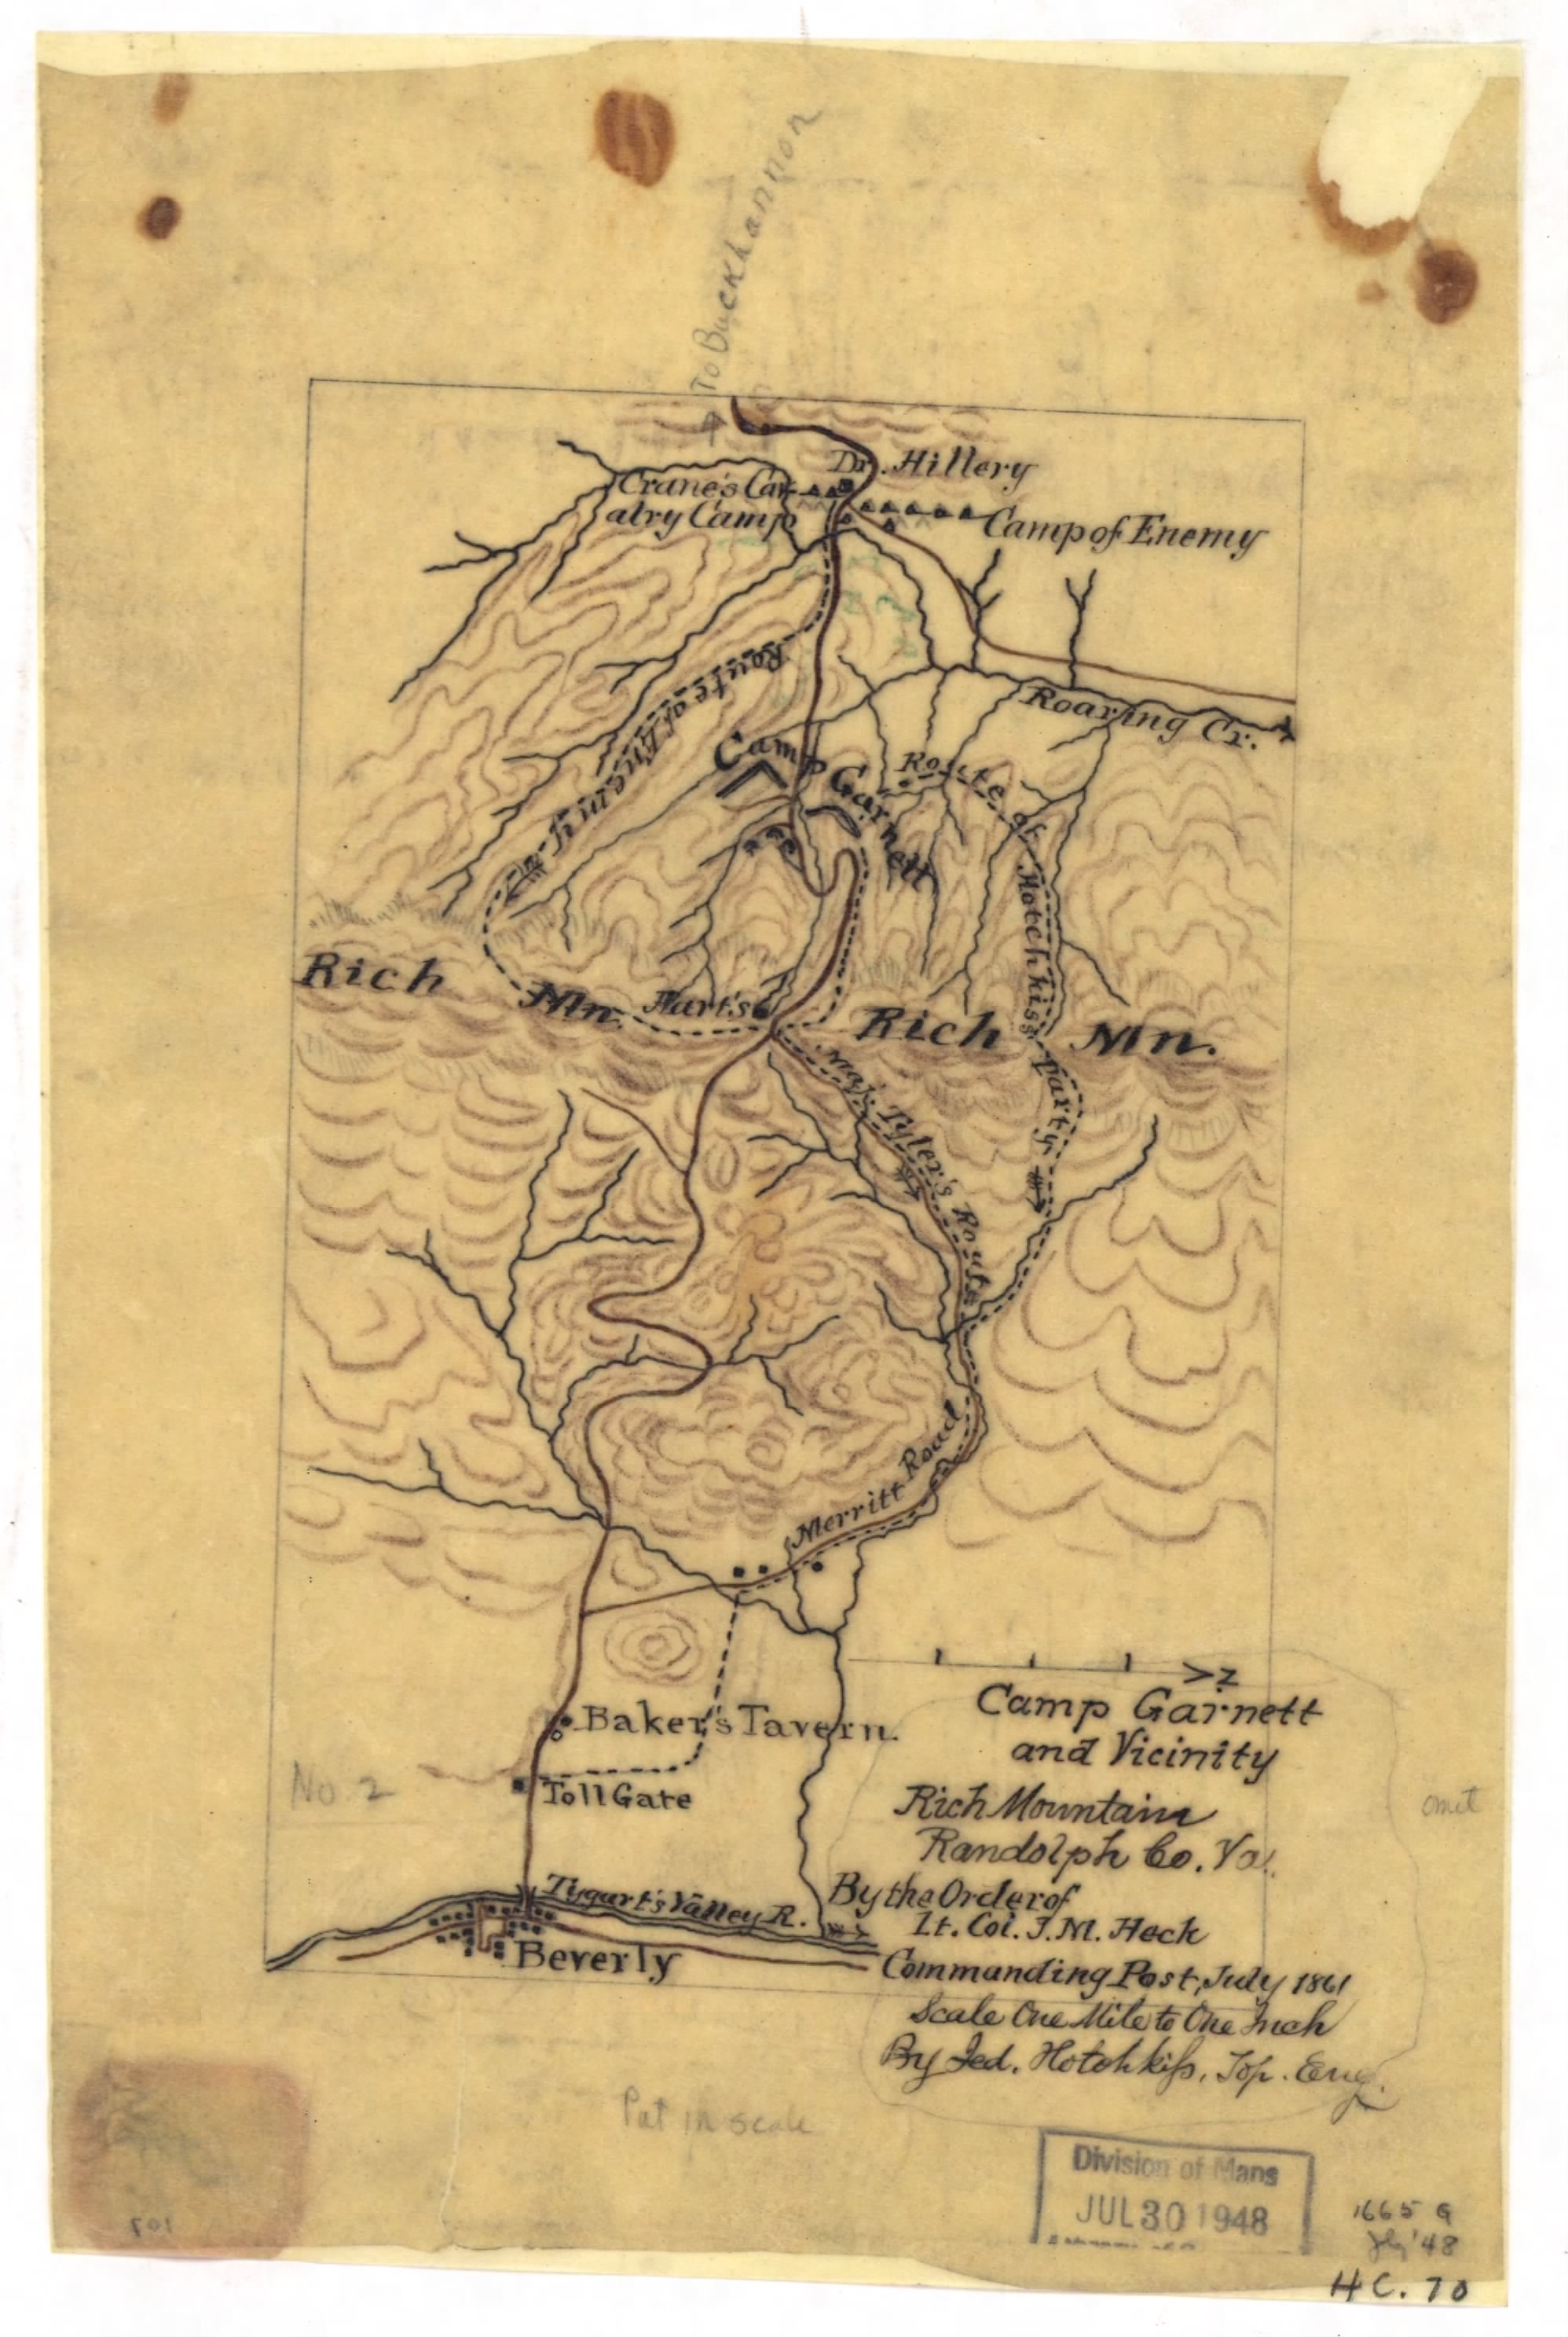 To Buckhannon
Dr. Hillery
Crane's Cav-
alry Camp
Camp of Enemy
Route of Enemy
Roaring Cr.
Camp Garnett
Route of Hotchkiss party
Rich Mn.
Hart's
Rich Mn.
Maj. Tyler's Route
Merritt Road
Baker's Tavern.
No. 2
Toll Gate
Tygart's Valley R.
Beverly
Z
Camp Garnett
and Vicinity
Rich Mountain
Randolph Co. Va.
By the Order of
Lt. Col. J. M. Heck
Commanding Post, July 1861
Scale One Mile to One Inch
By Jed. Hotchkiss, Top. Eng.
omit
Put in scale
Division of Maps
JUL 30 1948
107
1665 G
Jly '48
H C. 70